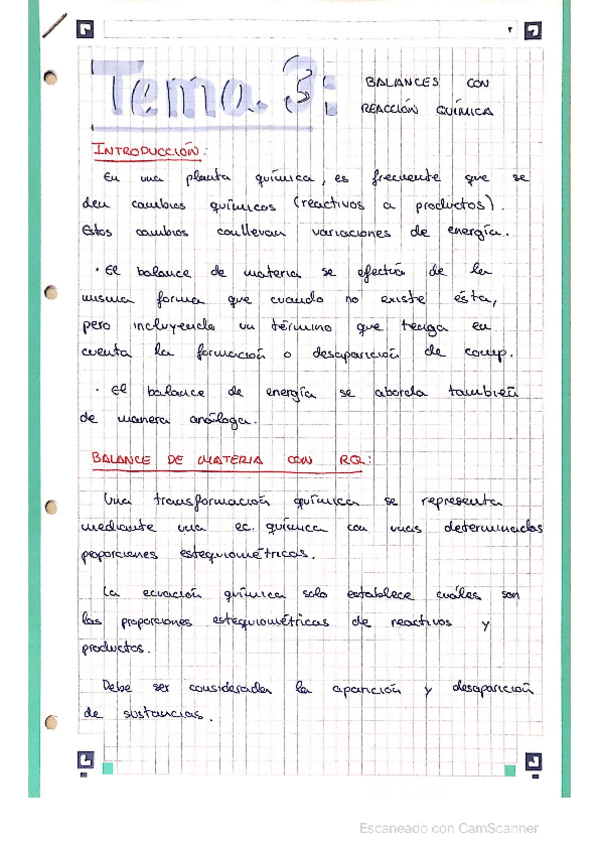 Tema. 3: BALANCES CON
REACCIÓN QUÍMICA
INTRODUCCIÓN:
En una planta química, es frecuente que se
den cambios químicos (reactivos a productos).
Estos cambios conllevan variaciones de energía.
· El balance de materia se efectúa de la
misma forma que cuando no existe ésta,
pero incluyendo un término que tenga en
cuenta la formación o desaparición de comp.
· El balance de energía se aborda también
de manera análoga.
BALANCE DE MATERIA CON RQ:
Una transformación química se representa
mediante una ec. química con unas determinadas
proporciones estequiométricas.
La ecuación química solo establece cuáles son
las proporciones estequiométricas de reactivos y
productos.
Debe ser considerada la aparición y desaparición
de sustancias.
Escaneado con CamScanner